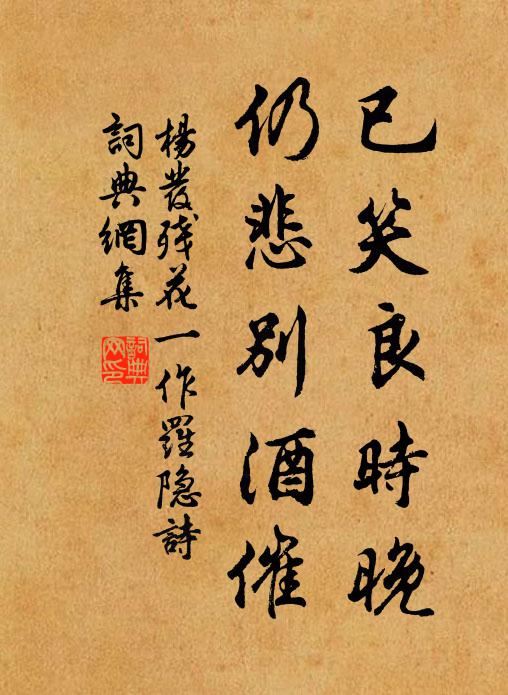 已笑良時晚
仍悲別酒催
楊發殘花一作羅隐詩
詞典網集
詞典網印